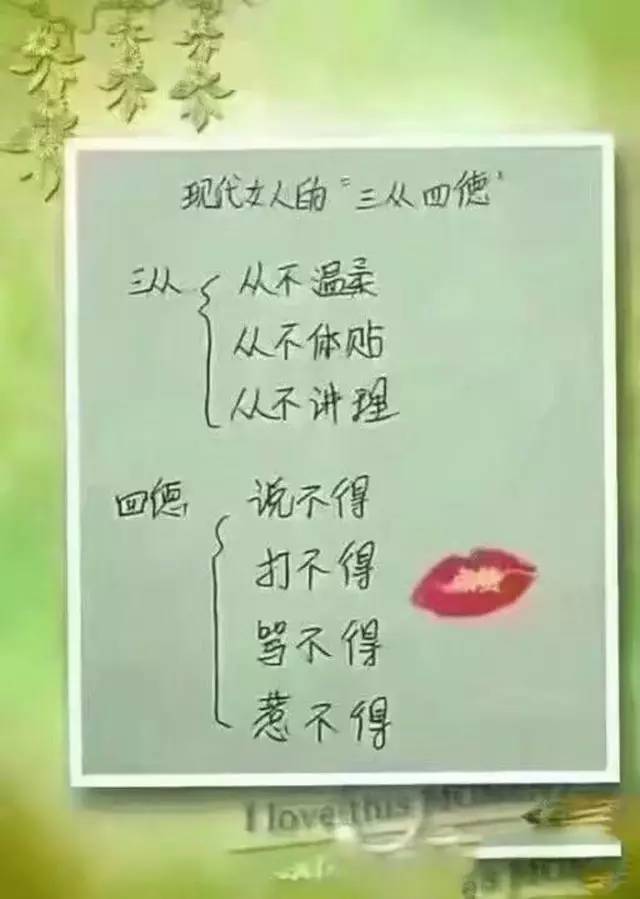 现代女人的“三从四德”
三从
从不温柔
从不体贴
从不讲理
四德
说不得
打不得
骂不得
惹不得
I love this